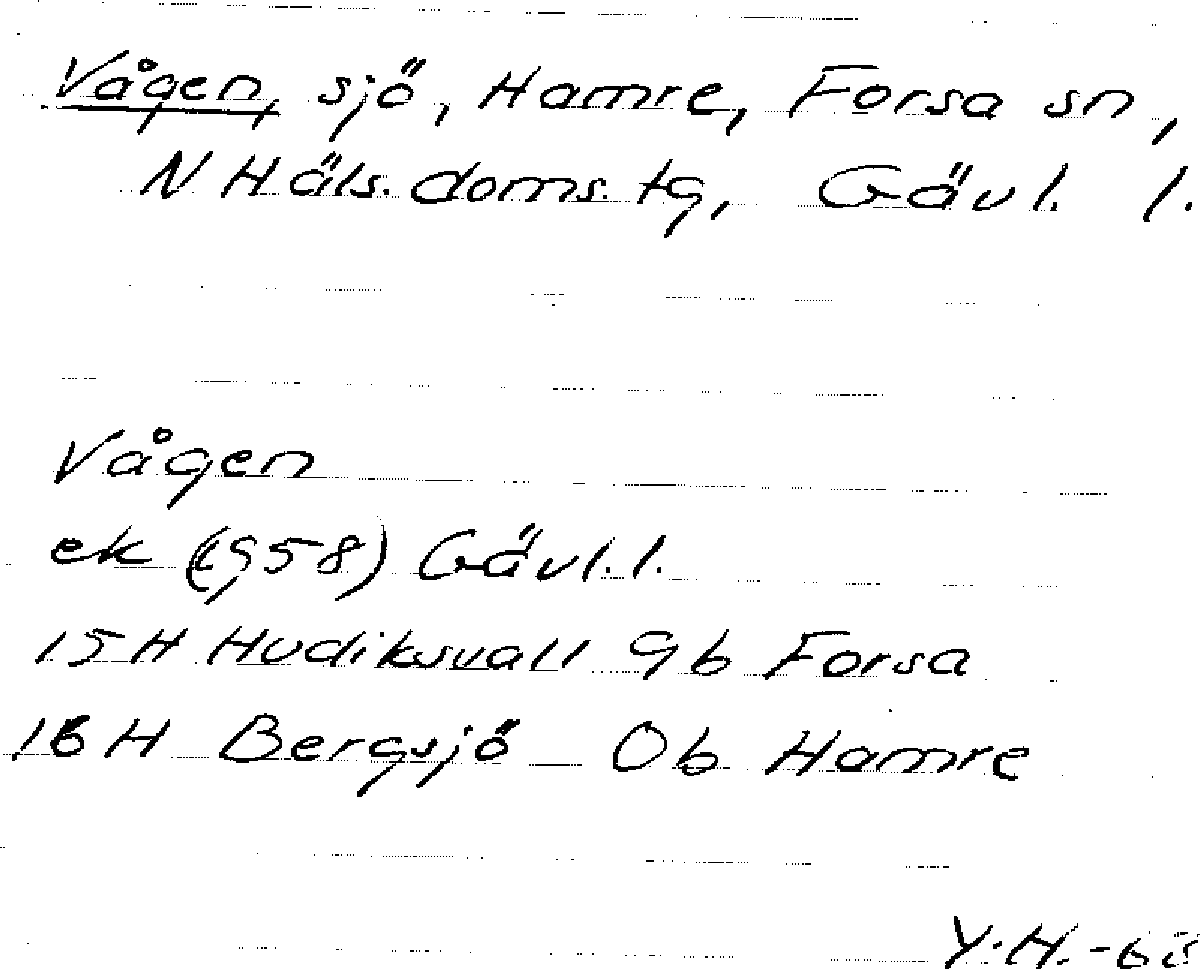 Vågen, sjö, Hamre, Forsa sn,
N Häls. doms. tg, Gävl. l.
Vågen
ek (1958) Gävl. l.
15H Hudiksvall 9b Forsa
16H Bergsjö 0b Hamre
Y.H.